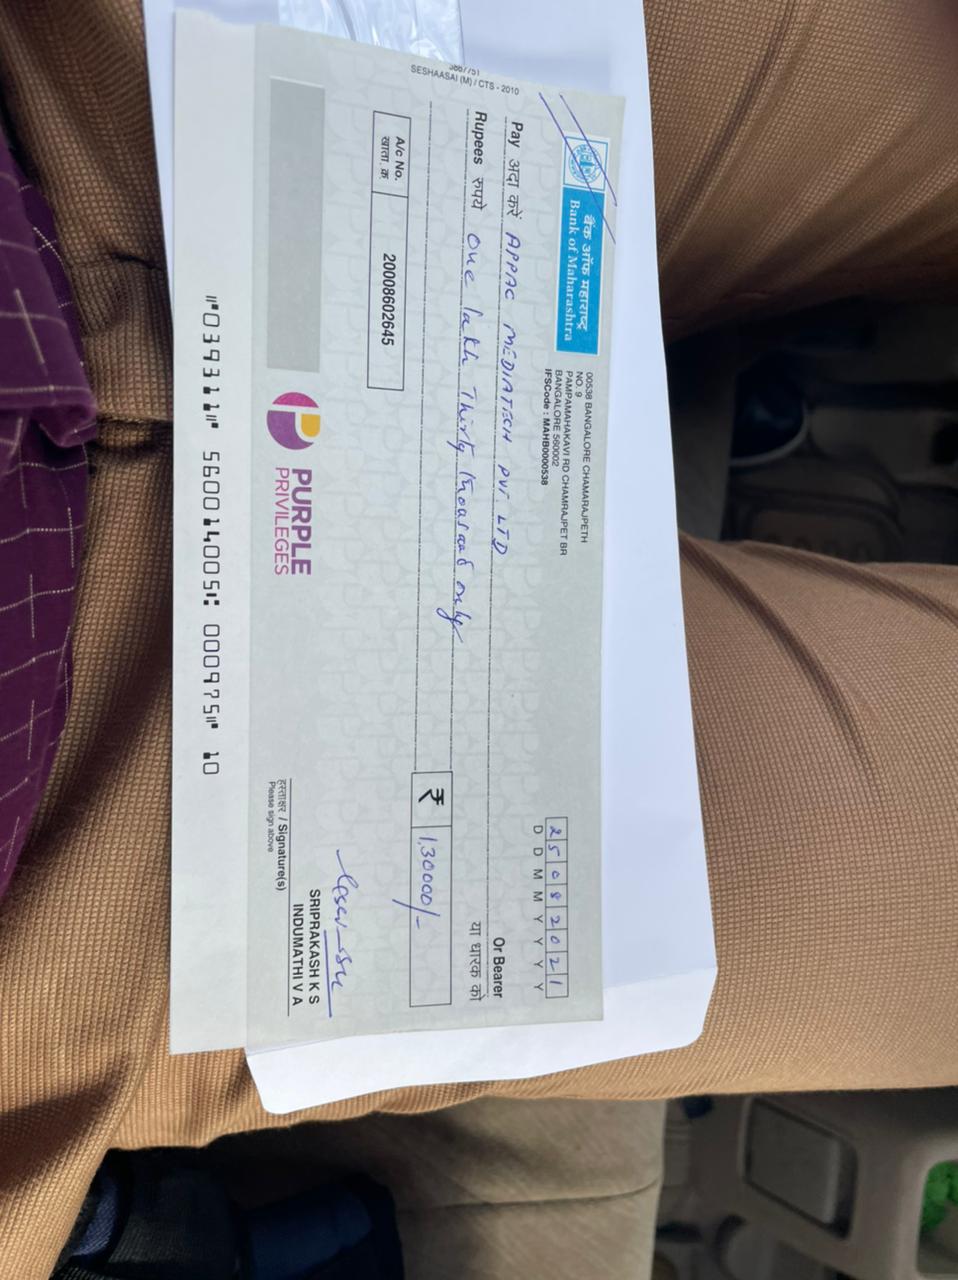 बैंक ऑफ महाराष्ट्र
Bank of Maharashtra
00538 BANGALORE CHAMARAJPETH
NO. 9
PAMPAMAHAKAVI RD CHAMRAJPET BR
BANGALORE 560002
IFSCode : MAHB0000538
25082021
D D M M Y Y Y Y
Pay अदा करें APPAC MEDIATECH PVT LTD
Or Bearer
या धारक को
Rupees रुपये One lakh Thirty thousand only
₹ 1,30000/-
A/c No.
खाता. क्र
20008602645
SESHAASAI (M) / CTS - 2010
PURPLE
PRIVILEGES
SRIPRAKASH K S
INDUMATHI V A
हस्ताक्षर / Signature(s)
Please sign above
⑈039311⑈ 560014005⑆ 000975⑈ 10